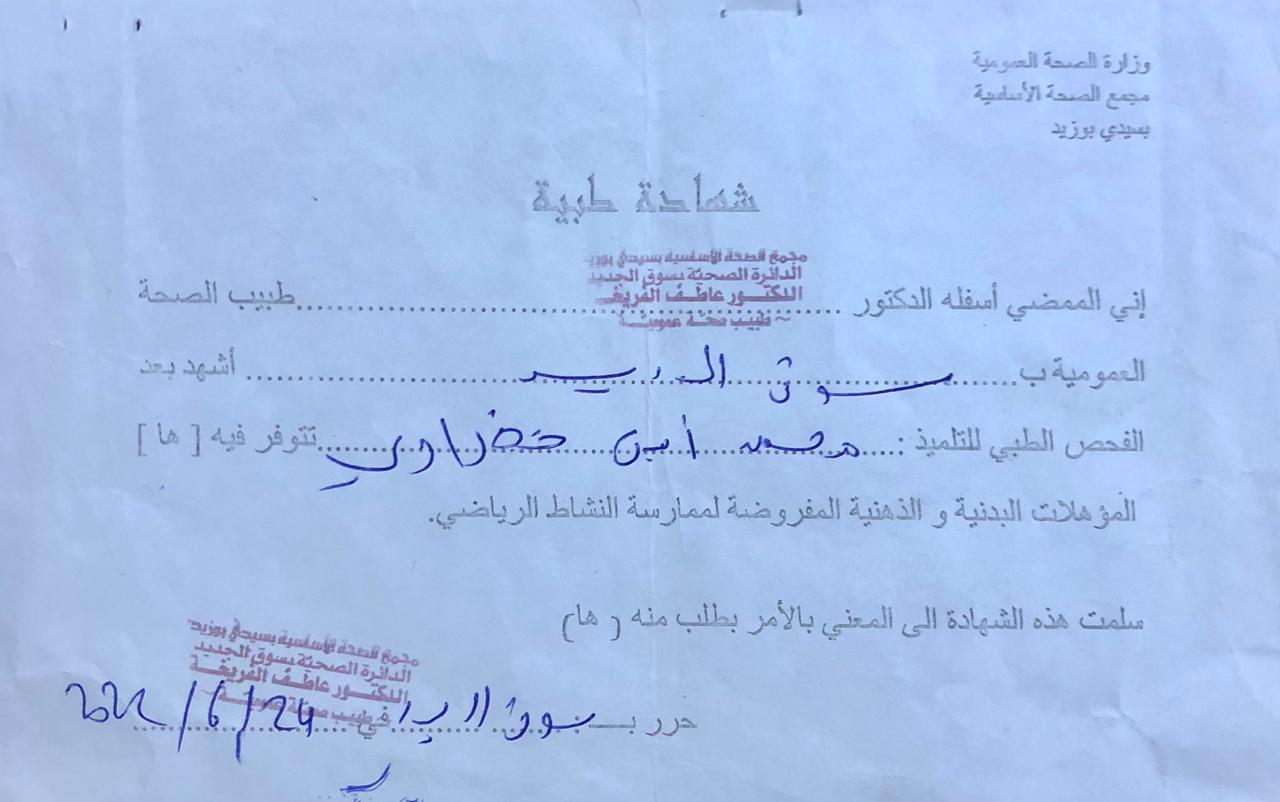 وزارة الصحة العمومية
مجمع الصحة الأساسية
بسيدي بوزيد
شهادة طبية
مجمع الصحة الأساسية بسيدي بوزيد
الدائرة الصحية بسوق الجديد
الدكتور عاطف الفريقي
طبيب صحة عمومية
إني الممضي أسفله الدكتور ........................ طبيب الصحة
العمومية ب...... سوق الجديد ...... أشهد بعد
الفحص الطبي للتلميذ :..... محمد أمين خضراوي ..... تتوفر فيه [ ها ]
المؤهلات البدنية و الذهنية المفروضة لممارسة النشاط الرياضي.
سلمت هذه الشهادة الى المعني بالأمر بطلب منه ( ها)
مجمع الصحة الأساسية بسيدي بوزيد
الدائرة الصحية بسوق الجديد
الدكتور عاطف الفريقي
طبيب صحة عمومية
حرر بـ سوق الجديد في 24/6/2022